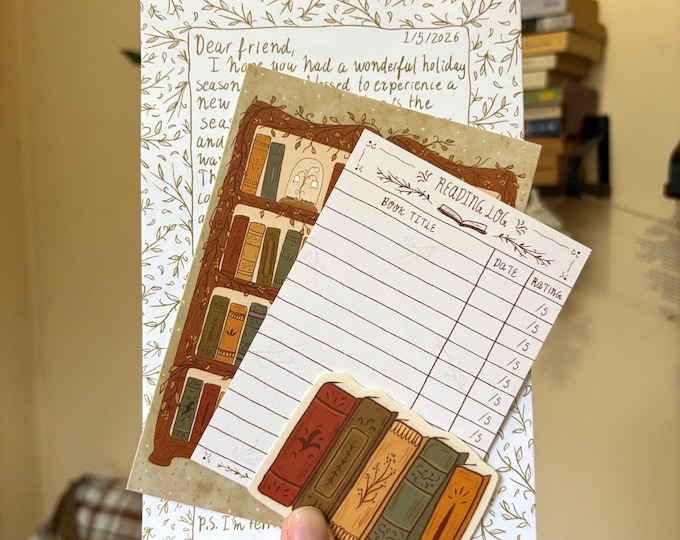 Dear friend,
1/5/2026
I hope you had a wonderful holiday
season
to experience a
new
the
sea
and
wa
Th
co
a
P.S. I'm
READING LOG
BOOK TITLE
DATE
RATING
/5
/5
/5
/5
/5
/5
/5